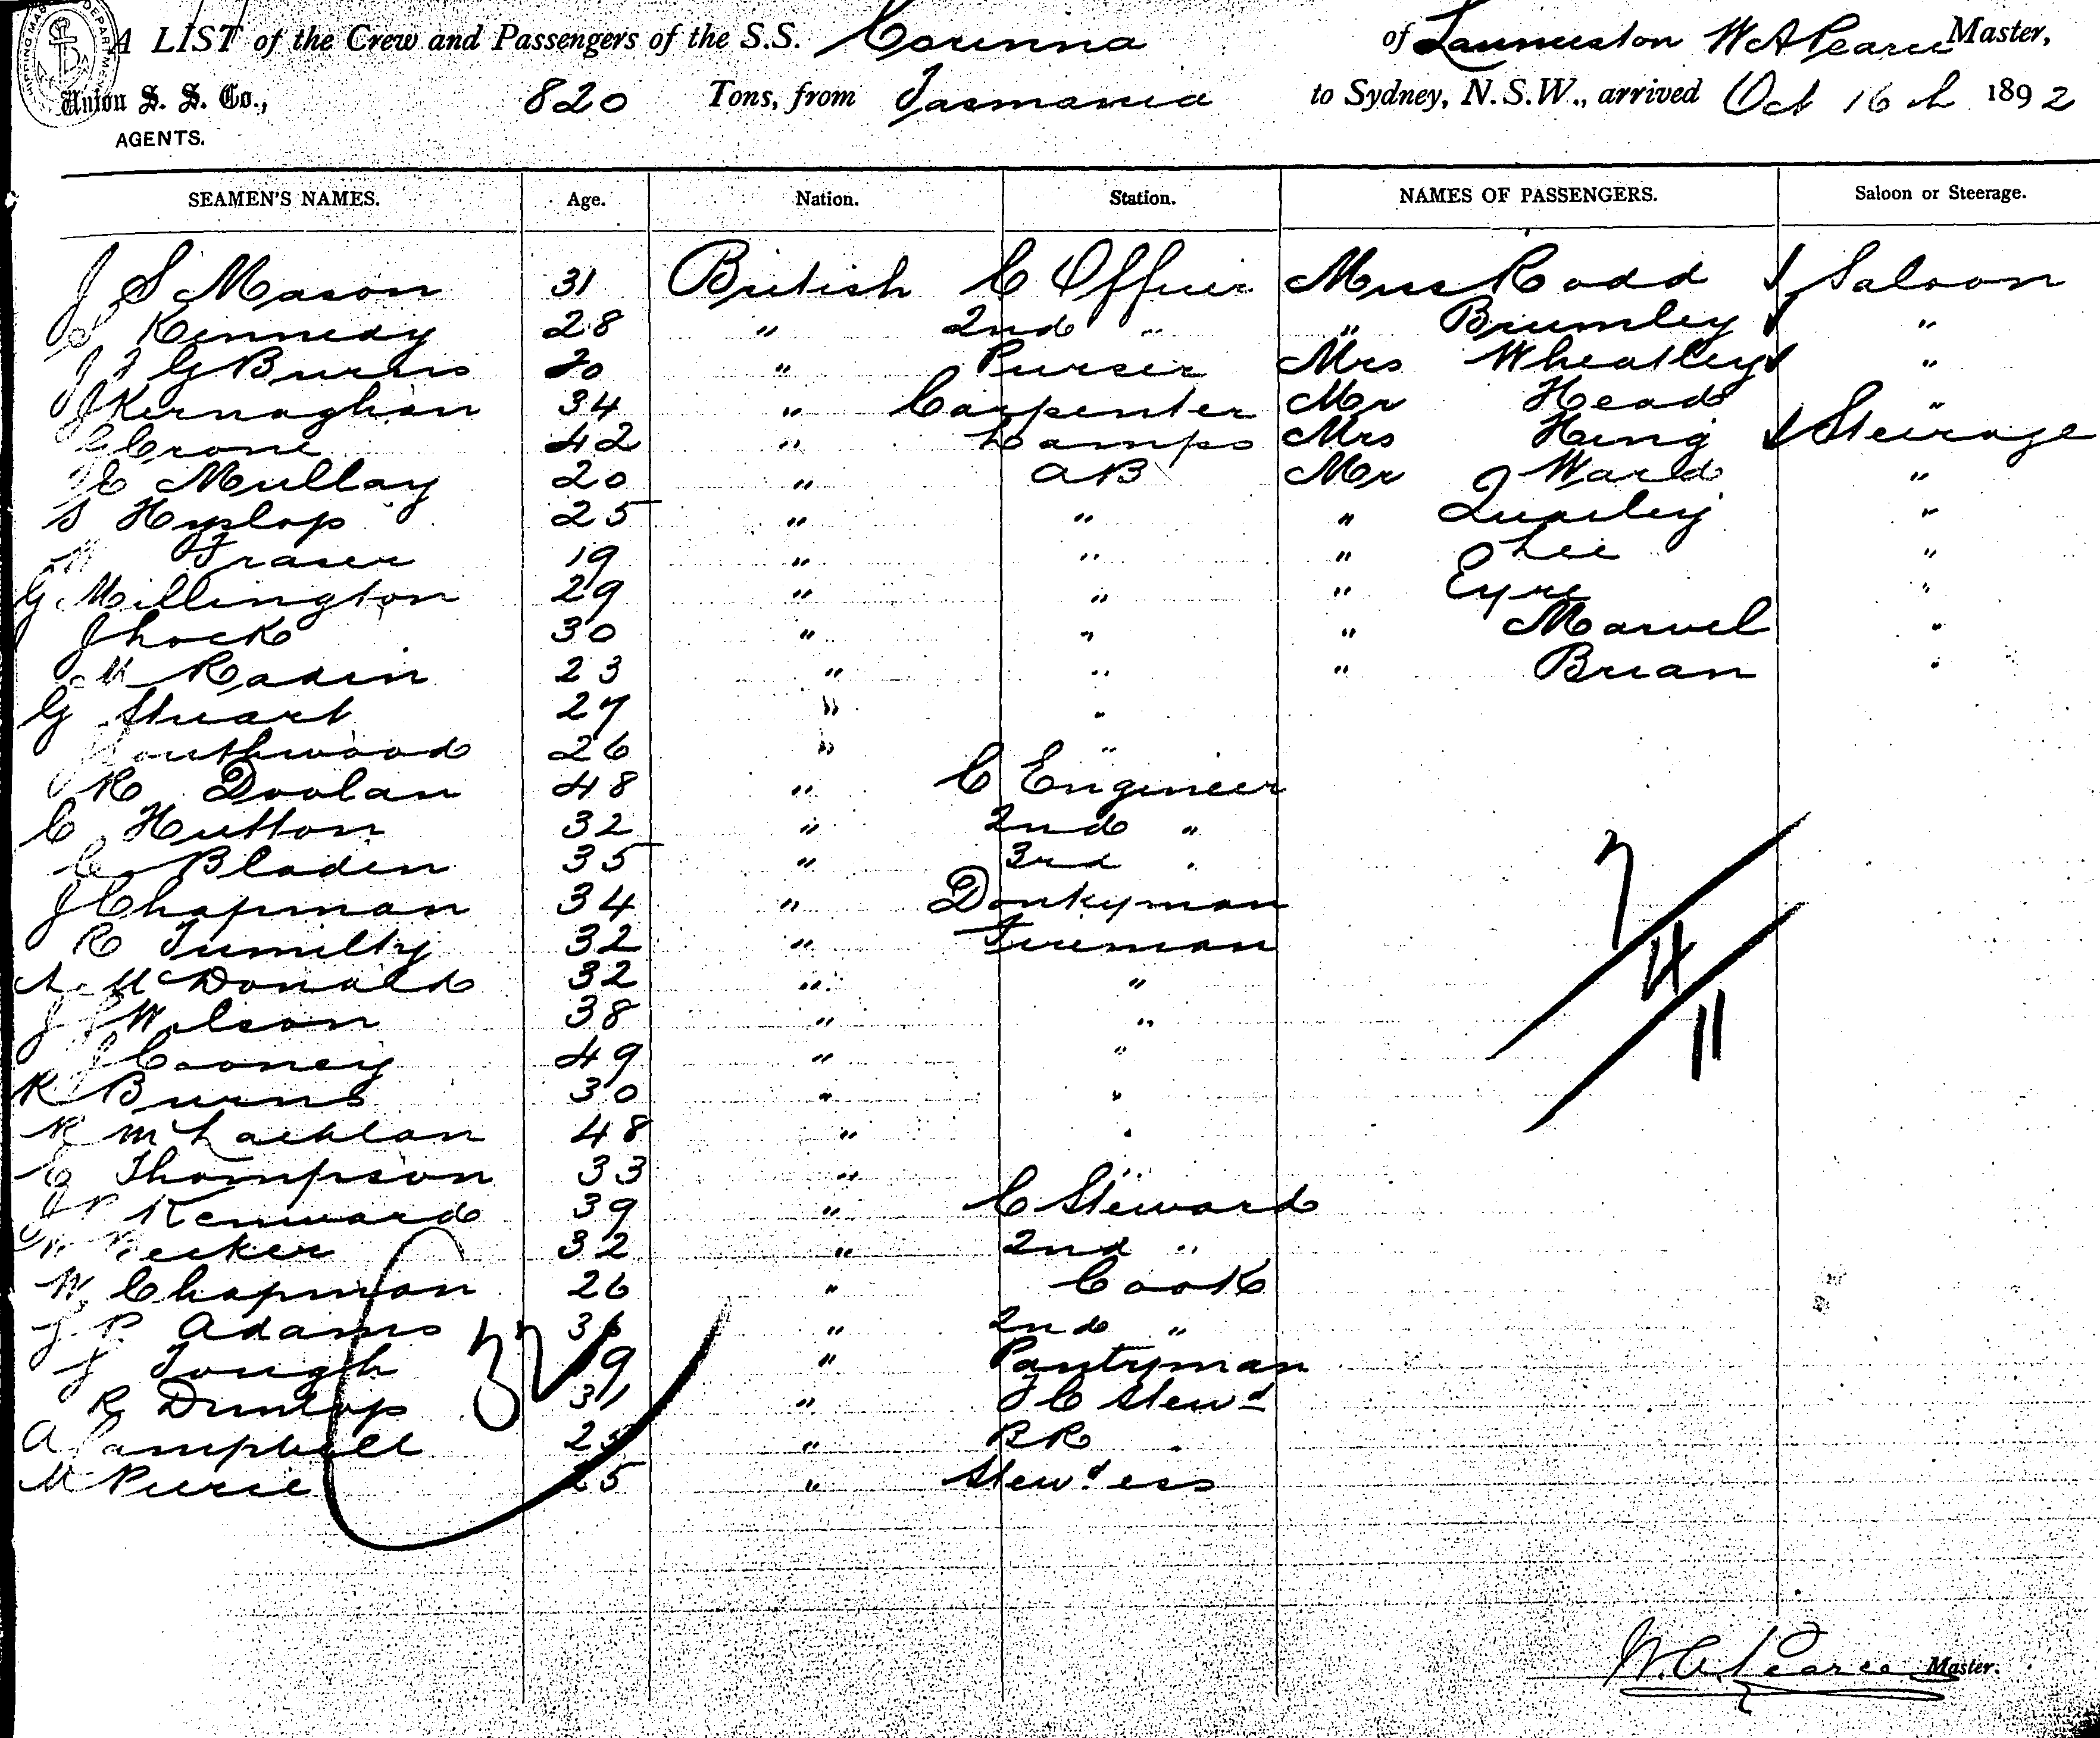 A LIST of the Crew and Passengers of the S.S. Corinna of Launceston W A Pearce Master,
Union S. S. Co., 820 Tons, from Tasmania to Sydney, N.S.W., arrived Oct 16th 1892
AGENTS.
SEAMEN'S NAMES. Age. Nation. Station. NAMES OF PASSENGERS. Saloon or Steerage.
J S Mason 31 British C Officer Miss Rodd Saloon
Kennedy 28 " 2nd " " Brumley "
J F G Burns 20 " Purser Mrs Wheatley "
J Kernaghan 34 " Carpenter Mr Head "
G Crone 42 " Lamps Mrs King Steerage
E Mullay 20 " AB Mr Ward "
S Hyslop 25 " " " Quarley "
Fraser 19 " " " Lee "
G Millington 29 " " " Eyre "
J Lock 30 " " " Marvel "
M Radin 23 " " " Brian "
G Stuart 27 " "
Southwood 26 " "
R Doolan 48 " C Engineer
C Hutton 32 " 2nd "
C Bladen 35 " 3rd "
J Chapman 34 " Donkyman
R Tumilty 32 " Fireman
A McDonald 32 " "
J Wilson 38 " "
J Cooney 49 " "
R Burns 30 " "
R McLachlan 48 " "
E Thompson 33 " "
Kenward 39 " C Steward
Becker 32 " 2nd "
W Chapman 26 " Cook
J P Adams 36 " 2nd "
J Tough 19 " Pantryman
R Dunlop 31 " F C Stewd
A Campbell 25 " BR "
M Peirie 25 " Stewdess
7
4
11
32
W. A. Pearce Master.